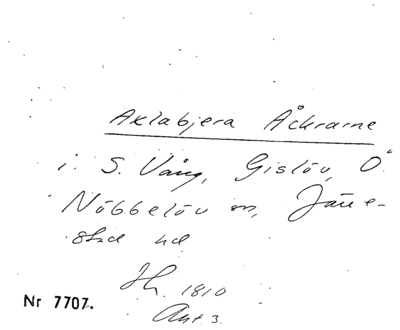 Axlabjera Åckrarne
i S. Vång, Gislöv, Ö.
Nöbbelöv sn, Järre-
stad hd
Sk. 1810
Akt 3.
Nr 7707.